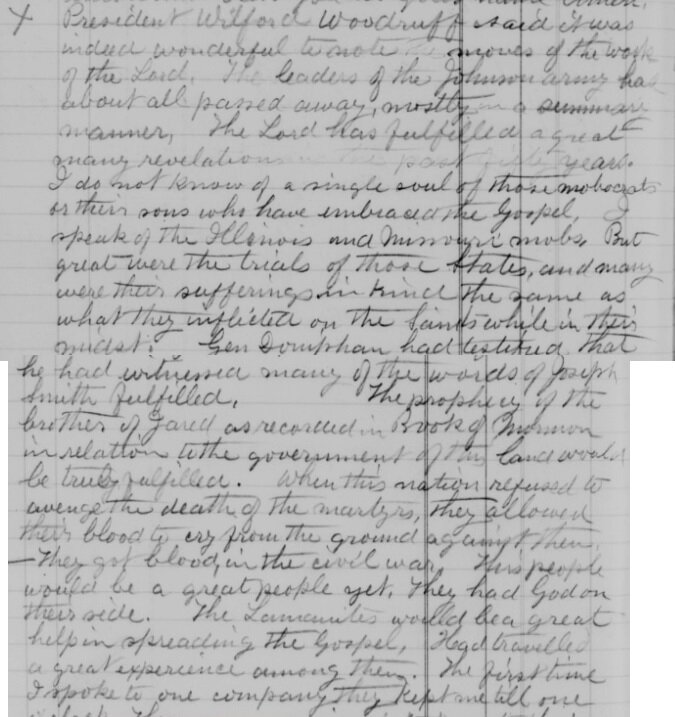 President Wilford Woodruff said it was
indeed wonderful to note the moves of the work
of the Lord. The leaders of the Johnson army has
about all passed away, mostly in a summary
manner, The Lord has fulfilled a great
many revelations in the past fifty years.
I do not know of a single soul of those mobocrats
or their sons who have embraced the Gospel, I
speak of the Illinois and Missouri mobs. But
great were the trials of those States, and many
were their sufferings in kind the same as
what they inflicted on the Saints while in their
midst. Gen Doniphan had testified that
he had witnessed many of the words of Joseph
Smith fulfilled. The prophecy of the
brother of Jared as recorded in Book of Mormon
in relation to the government of this land would
be truly fulfilled. When this nation refused to
avenge the death of the martyrs, they allowed
their blood to cry from the ground against them.
— They got blood, in the civil war. This people
would be a great people yet. They had God on
their side. The Lamanites would be a great
help in spreading the Gospel, Had travelled
a great experience among them. The first time
I spoke to one company they kept me till one